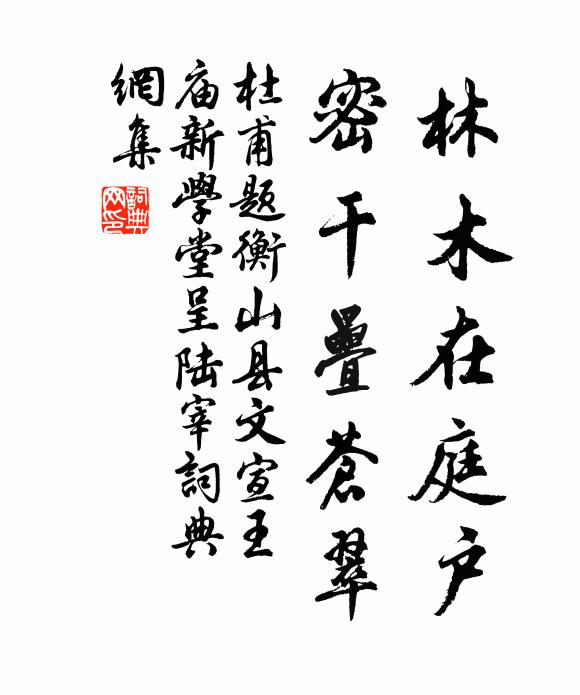 林木在庭户
密干疊蒼翠
杜甫題衡山县文宣王
庙新學堂呈陆宰詞典
網集
詞典
网印